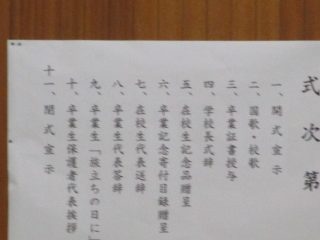 式次第
一、開式宣示
二、国歌・校歌
三、卒業証書授与
四、学校長式辞
五、在校生記念品贈呈
六、卒業記念寄付目録贈呈
七、在校生代表送辞
八、卒業生代表答辞
九、卒業生「旅立ちの日に」
十、卒業生保護者代表挨拶
十一、閉式宣示